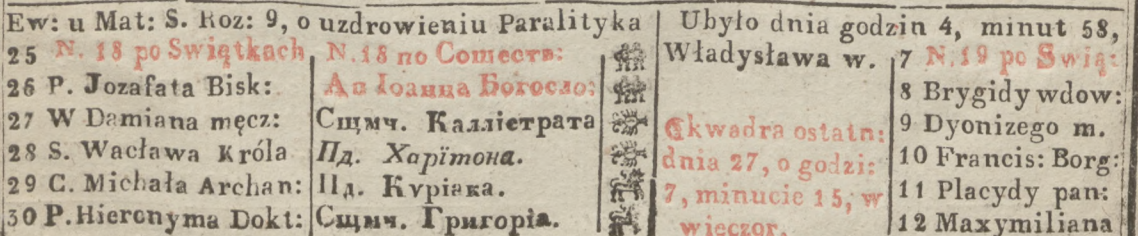 Ew: u Mat: S. Roz: 9, o uzdrowieniu Paralityka
Ubyło dnia godzin 4, minut 58,
25 N. 18 po Swiątkach
26 P. Jozafata Bisk:
27 W Damiana męcz:
28 S. Wacława Króla
29 C. Michała Archan:
30 P. Hieronyma Dokt:
N. 18 по Сошеств:
Ап Іоанна Богосло:
Сщмч. Каллістрата
Пд. Харїтона.
Пд. Курїака.
Сщмч. Григоріа.
Władysława w.
kwadra ostatn:
dnia 27, o godzi:
7, minucie 15, w
wieczor.
7 N. 19 po Swią:
8 Brygidy wdow:
9 Dyonizego m.
10 Francis: Borg:
11 Placydy pan:
12 Maxymiliana